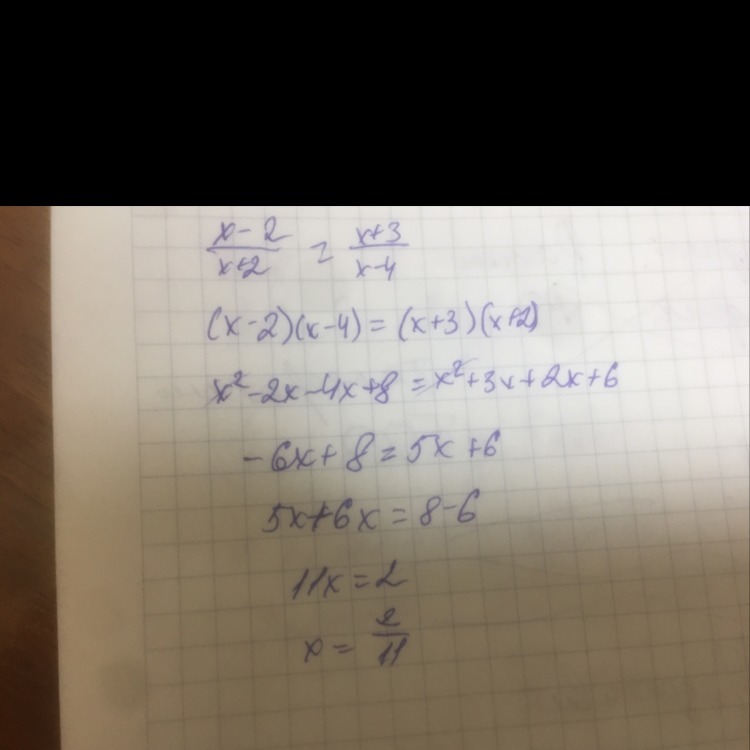 x-2/x+2 = x+3/x-4
(x-2)(x-4)=(x+3)(x+2)
x²-2x-4x+8=x²+3x+2x+6
-6x+8=5x+6
5x+6x=8-6
11x=2
x=2/11